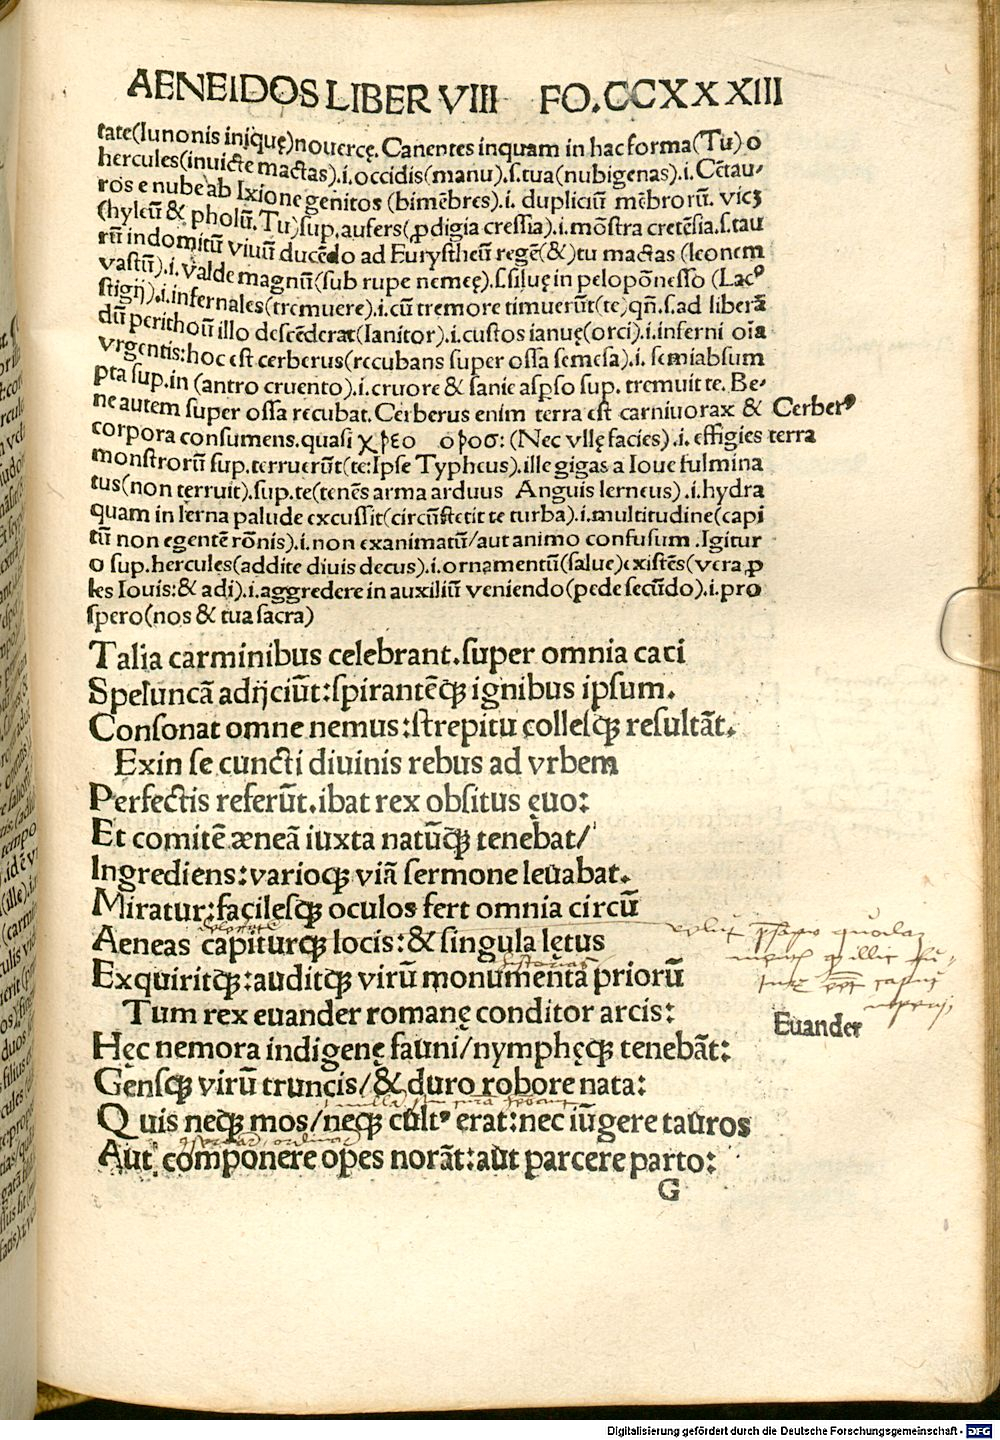 AENEIDOS LIBER VIII FO.CCXXXIII
tate(Iunonis iniquę)nouercę. Canentes inquam in hac forma(Tu) o
hercules(inuicte mactas).i.occidis(manu).ſ.tua(nubigenas).i. Cētau-
ros e nube ab Ixione genitos (bimēbres).i. dupliciū mēbrorū. vicꝫ
(hyleū & pholū. Tu)ſup.aufers(ꝓdigia creſſia).i.mōſtra cretēſia.ſ.tau
rū indomitū viuū ducēdo ad Euryſtheū regē(&)tu mactas (leonem
vaſtū).i.valde magnū(ſub rupe nemeę).ſ.ſiluę in pelopōneſſo (Lacꝰ
ſtigij).i.infernales(tremuere).i.cū tremore timuerūt(te)qn̄.ſ.ad liberā
dū perithoū illo deſcēderat(Ianitor).i.cuſtos ianuę(orci).i.inferni oīa
vrgentis:hoc eſt cerberus(recubans ſuper oſſa ſemeſa).i. ſemiabſum
pta ſup.in (antro cruento).i.cruore & ſanie aſpſo ſup. tremuit te. Be-
ne autem ſuper oſſa recubat. Cerberus enim terra eſt carniuorax &
Cerberꝰ
corpora conſumens.quaſi χρεο ορος: (Nec vllę facies).i. effigies
terra
monſtrorū ſup.terruerūt(te:Ipſe Typheus).ille gigas a Ioue fulmina
tus(non terruit).ſup.te(tenēs arma arduus Anguis lerneus).i.hydra
quam in lerna palude excuſſit(circūſtetit te turba).i.multitudine(capi
tū non egentē rōnis).i.non exanimatū/aut animo confuſum .Igitur
o ſup.hercules(addite diuis decus).i.ornamentū(ſalue)exiſtēs(vera ꝓ
les Iouis:& adi).i.aggredere in auxiliū veniendo(pede ſecūdo).i.pro
ſpero(nos & tua ſacra)
Talia carminibus celebrant.ſuper omnia caci
Speluncā adijciūt:ſpirantēqꝫ ignibus ipſum.
Conſonat omne nemus:ſtrepitu colleſqꝫ reſultāt.
Exin ſe cuncti diuinis rebus ad vrbem
Perfectis referūt.ibat rex obſitus ęuo:
Et comitē æneā iuxta natūqꝫ tenebat/
Ingrediens:varioqꝫ viā ſermone leuabat.
Miratur:facileſqꝫ oculos fert omnia circū
Aeneas capiturqꝫ locis:& ſingula letus
Exquiritqꝫ:auditqꝫ virū monumenta priorū
Tum rex euander romanę conditor arcis:
Euander
Hęc nemora indigenę fauni/nymphęqꝫ tenebāt:
Genſqꝫ virū truncis/& duro robore nata:
Quis neqꝫ mos/neqꝫ cultꝰ erat:nec iūgere tauros
Aut componere opes norāt:aut parcere parto:
G
Digitalisierung gefördert durch die Deutsche Forschungsgemeinschaft - DFG